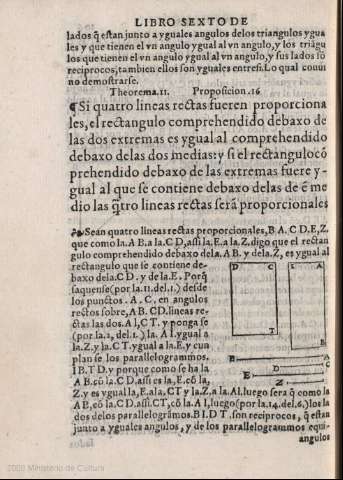 LIBRO SEXTO DE
lados q̃ estan junto a yguales angulos delos triangulos ygua
les y que tienen el vn angulo ygual al vn angulo, y los triãgu
los que tienen el vn angulo ygual al vn angulo, y sus lados sõ
reciprocos, tambien ellos son yguales entresi. Lo qual conui
no demostrarse.
Theorema. 11. Proposicion. 16
¶ Si quatro lineas rectas fueren proporciona
les, el rectangulo comprehendido debaxo de
las dos extremas es ygual al comprehendido
debaxo delas dos medias: y si el rectangulo cõ
prehendido debaxo de las extremas fuere y-
gual al que se contiene debaxo delas de ẽ me
dio las q̃tro lineas rectas será proporcionales
Sean quatro lineas rectas proporcionales, B A. C D. E, Z.
que como la. A B. a la. C D, assi la. E. a la. Z. digo que el rectan
gulo comprehendido debaxo dela. A B. y dela. Z, es ygual al
rectangulo que se contiene de-
baxo dela. C D. y de la. E. Porq̃
saquense (por la. 11. del. 1.) desde
los punctos. A. C, en angulos
rectos sobre, A B. C D. lineas re-
ctas las dos. A I, C T. y ponga se
(por la. 2, del. 1.) la. A I. ygual a
la. Z. y la. C T. ygual a la. E. y cun
plan se los parallelogrammos.
I B. T D. y porque como se ha la
A B. cõ la. C D. assi es la, E. cõ la,
Z. y es ygual la, E. a la, C T y la. Z. a la. A I. luego sera q̃ como la
A B, cõ la. C D. assi. C T, cõ la. A I, luego (por la. 14. del. 6.) los la
dos delos parallelogrãmos. B I. D T. son reciprocos, q̃ estan
junto a yguales angulos, y de los parallelogrammos equi-
angulos
D C
T
I A
B
B A
C
D
E
Z
2009 Ministerio de Cultura